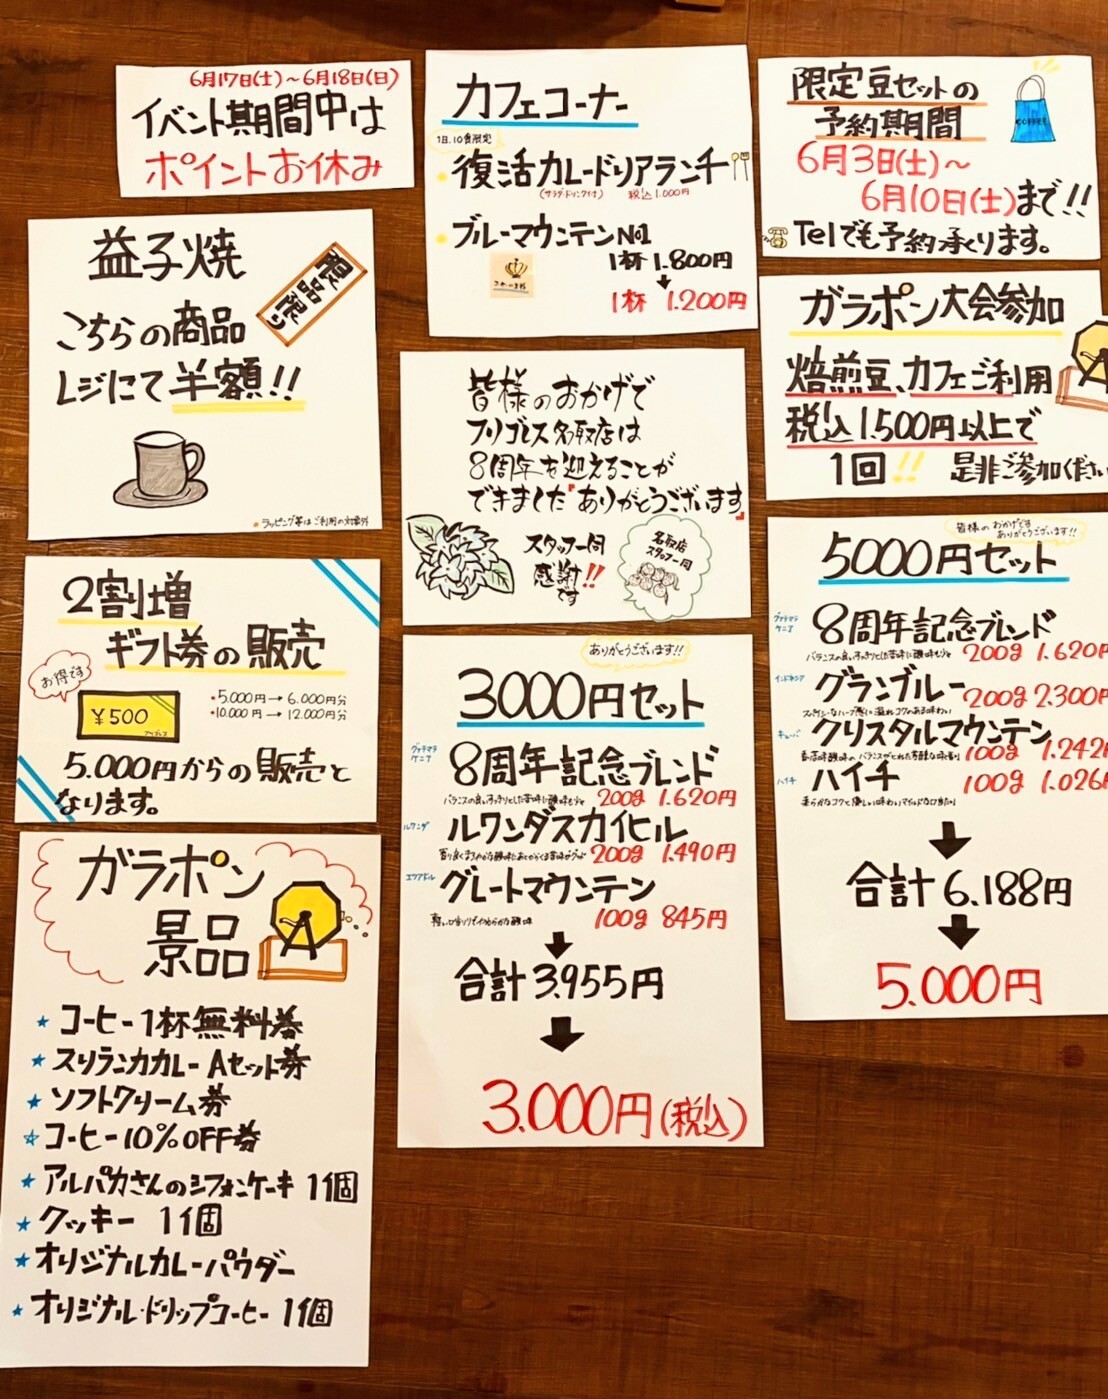 6月17日(土)～6月18日(日)
イベント期間中は
ポイントお休み
カフェコーナー
1日、10食限定
復活カレードリアランチ
(サラダ・ドリンク付)
税込 1.000円
ブルーマウンテンNo1
1杯 1.800円
1杯 1.200円
限定豆セットの
予約期間
COFFEE
6月3日(土)～
6月10日(土)まで!!
Telでも予約承ります。
益子焼
限品限り
こちらの商品
レジにて半額!!
ラッピング等はご利用の対象外
皆様のおかげで
フリゴレス名取店は
8周年を迎えることが
できました『ありがとうございます』
スタッフ一同
感謝!!
です
名取店
スタッフ一同
ガラポン大会参加
焙煎豆、カフェご利用
税込1.500円以上で
1回!! 是非ご参加ください
2割増
ギフト券の販売
お得です
¥500
・5.000円→6.000円分
・10.000円→12.000円分
5.000円からの販売と
なります。
ありがとうございます!!
3000円セット
グァテマラ
ケニア
8周年記念ブレンド
200g 1.620円
ルワンダ
ルワンダスカイヒル
200g 1.490円
エクアドル
グレートマウンテン
100g 845円
合計3.955円
3.000円(税込)
皆様のおかげです
ありがとうございます!!
5000円セット
グァテマラ
ケニア
8周年記念ブレンド
200g 1.620円
インドネシア
グランブルー
200g 2.300円
キューバ
クリスタルマウンテン
100g 1.242円
ハイチ
ハイチ
100g 1.026円
柔らかなコクと優しい味わいマイルドな口当たり
合計6.188円
5.000円
ガラポン
景品
★コーヒー1杯無料券
★スリランカカレーAセット券
★ソフトクリーム券
☆コーヒー10%OFF券
★アルパカさんのシフォンケーキ 1個
★クッキー 1個
★オリジナルカレーパウダー
★オリジナル・ドリップコーヒー 1個